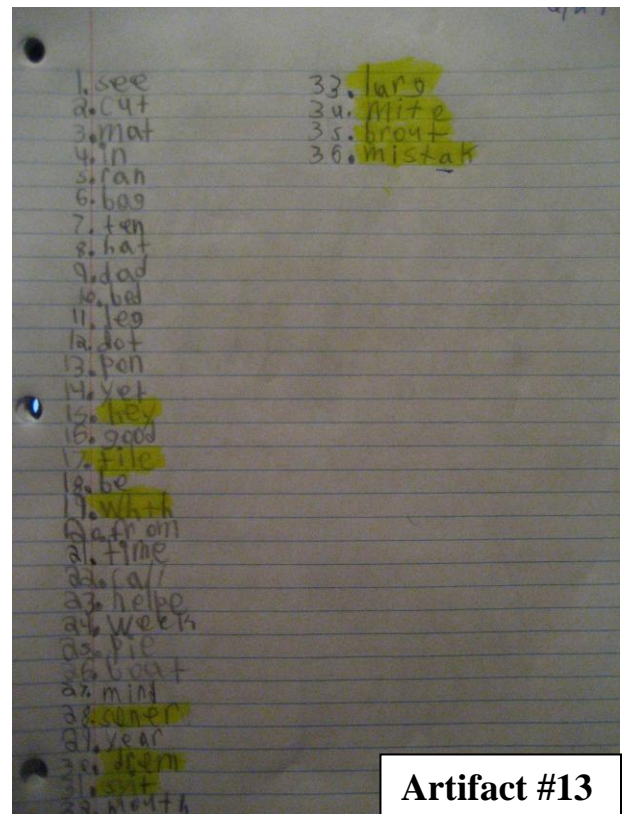 1. see
2. cut
3. mat
4. in
5. ran
6. bag
7. ten
8. hat
9. dad
10. bed
11. leg
12. dot
13. pon
14. yet
15. hey
16. good
17. file
18. be
19. whth
from
21. time
22. call
23. helpe
24. week
25. pie
26. boat
27. mint
28. soner
29. year
30. drem
31. snt
32. mouth
33. larg
34. mite
35. brout
36. mistak
Artifact #13